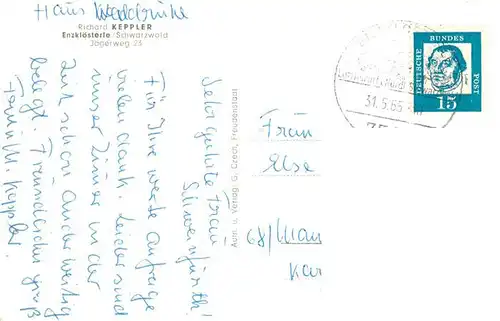 Haus Waldbrücke
Richard KEPPLER
Enzklösterle/Schwarzwald
Jägerweg 23
Sehr geehrte Frau
Schweinfürth!
Für Ihre werte Anfrage
vielen dank. Leider sind
unser Zimmer in der
Zeit schon anderweitig
belegt. Freundlichen gruß
Fam. Keppler.
Aufn. u. Verlag: G. Grech, Freudenstadt
31.5.65
DEUTSCHE
BUNDES
POST
15
Frau
Else
68/Mann
Kar